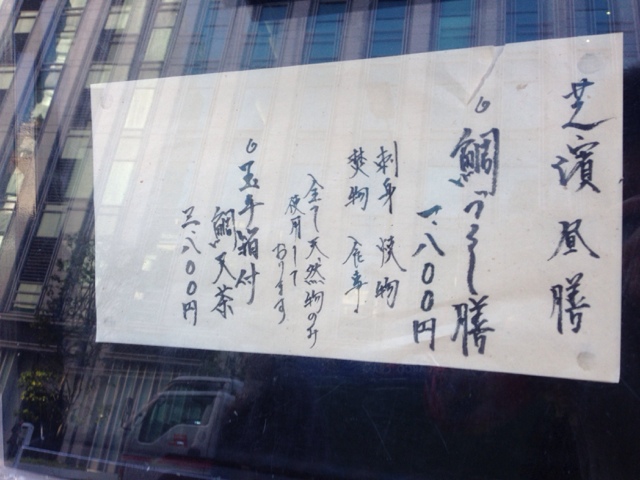 芝濱 昼膳
鯛づくし膳
一、八〇〇円
刺身 焼物
焚物 食事
全て天然物のみ
使用して
おります
玉手箱付
鯛天茶
二、八〇〇円